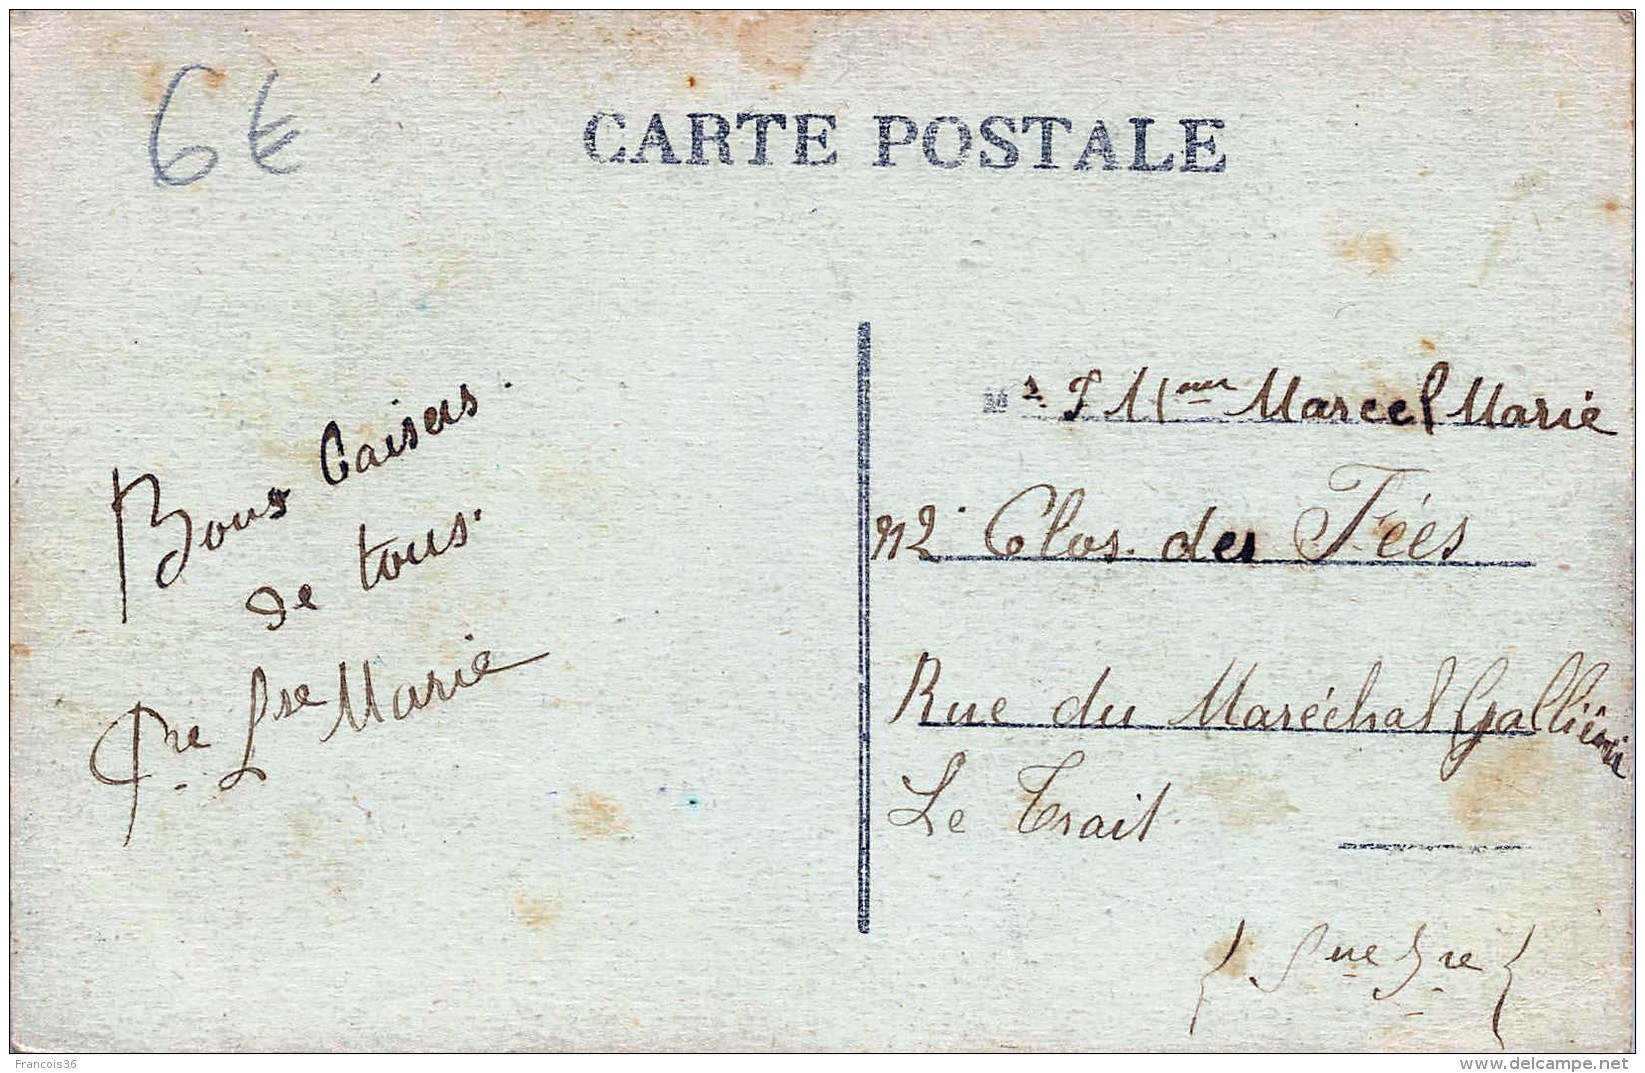 6€
CARTE POSTALE
Bons baisers.
de tous.
Pre Lse Marie
Mr & Mme Marcel Marie
n2. Clos des Fées
Rue du Maréchal Galliéni
Le Trait
(Sne Ire)
Francois36
delcampe.net